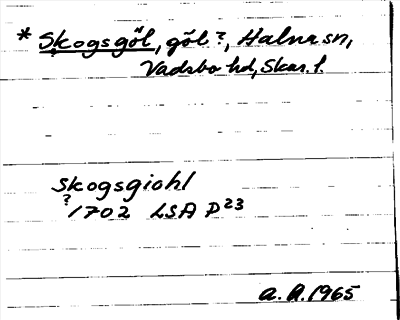 * Skogsgöl, göl?, Halna sn,
Vadsbo hd, Skar. l.
Skogsgiohl
? 1702 LSA P23
A. A. 1965